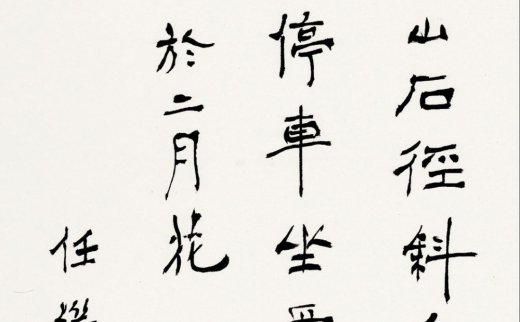 山石徑斜
停車坐
於二月花
任